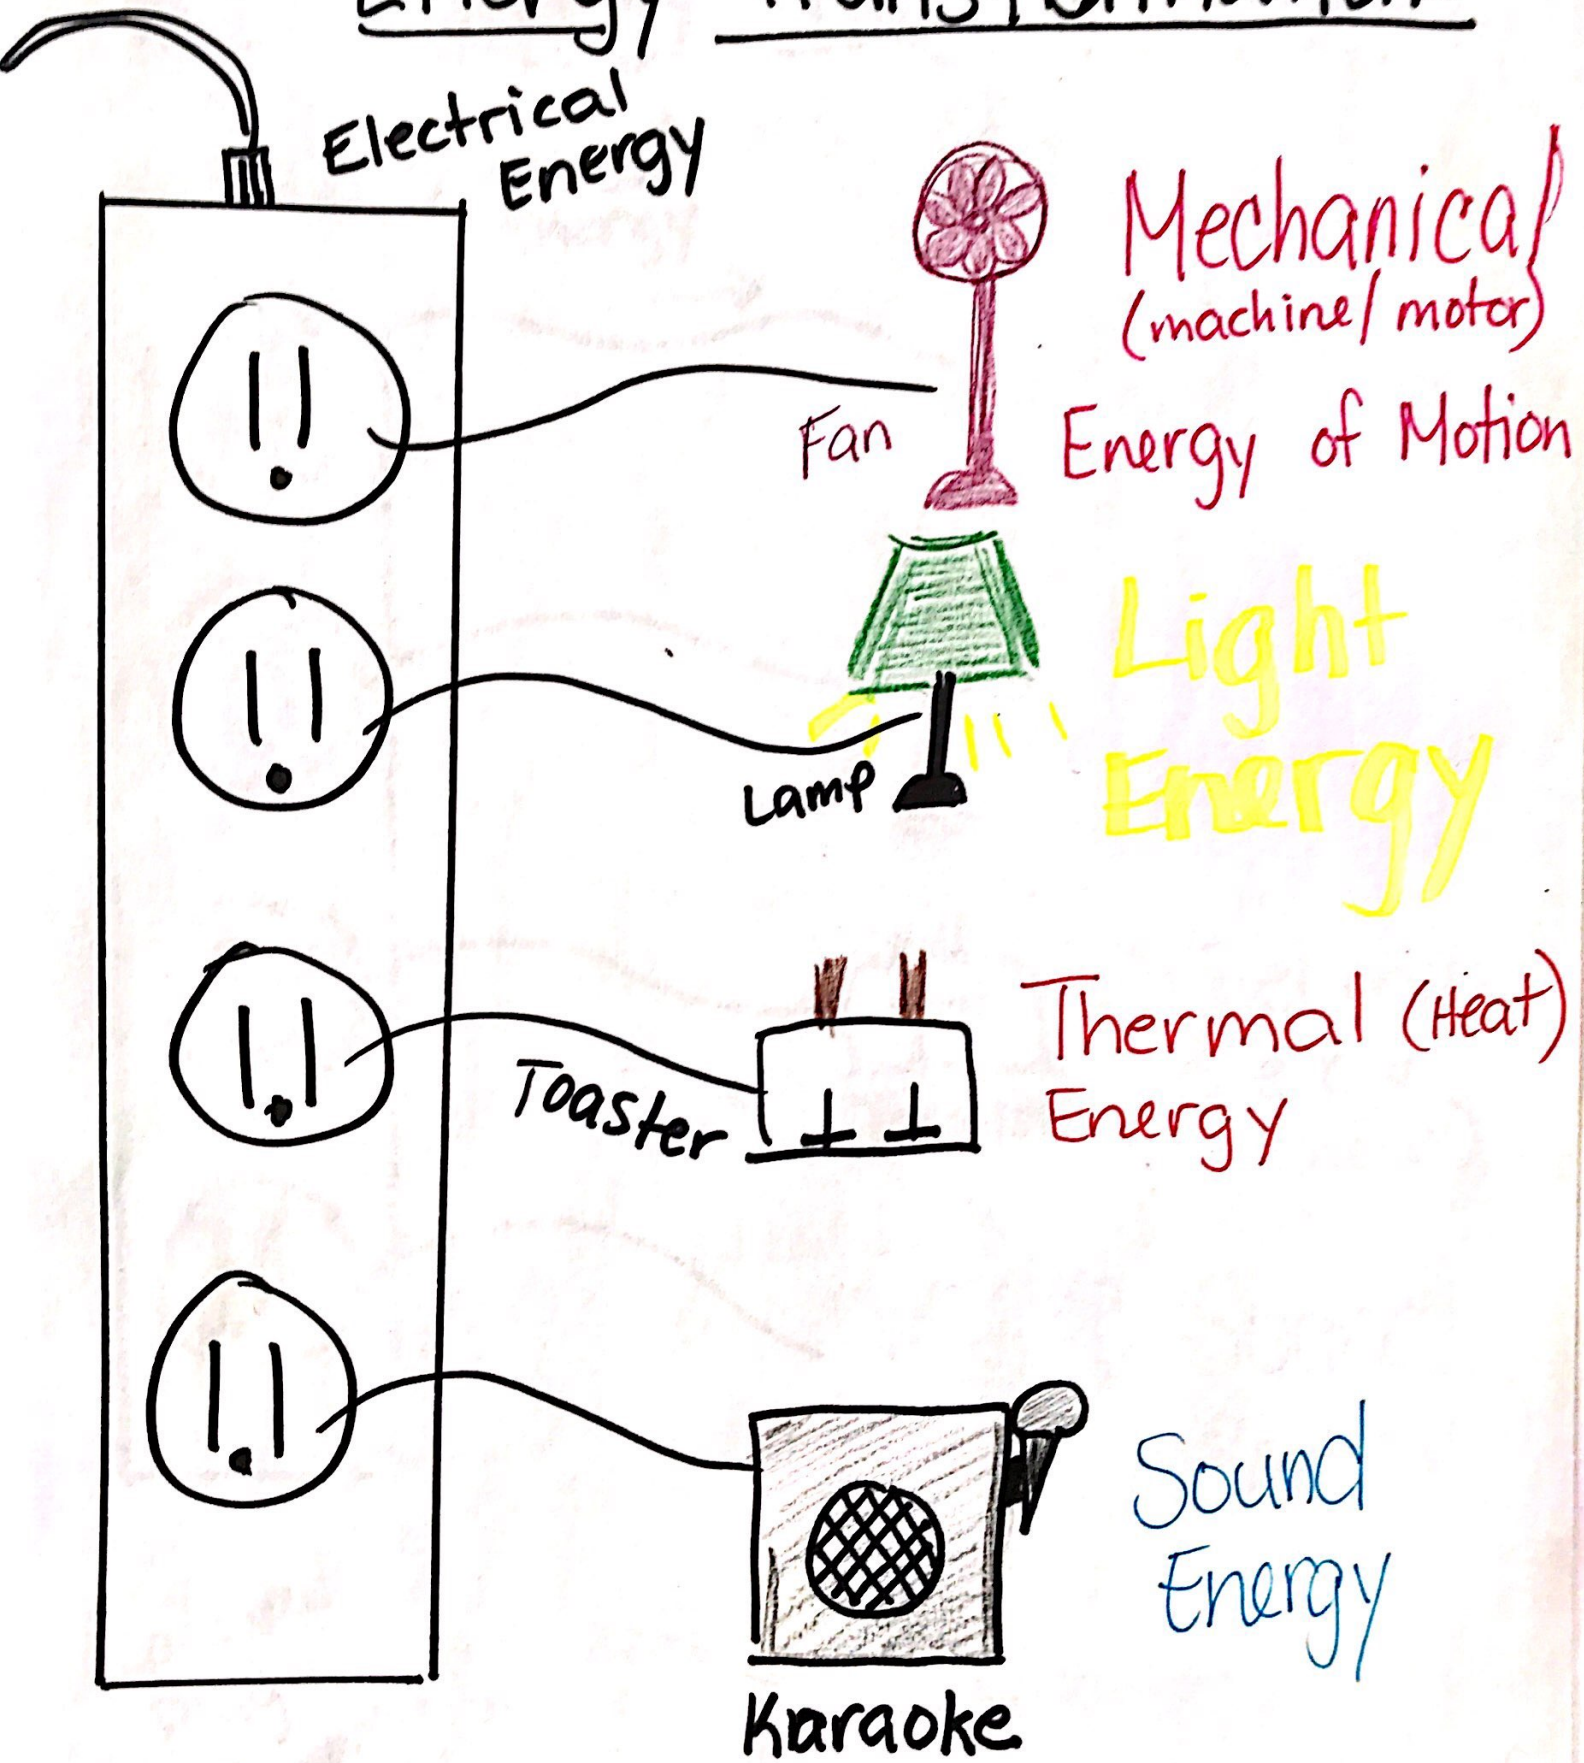 Energy Transformation
Electrical
Energy
Mechanical
(machine/motor)
Fan
Energy of Motion
Light
Energy
Lamp
Thermal (Heat)
Energy
Toaster
Sound
Energy
Karaoke